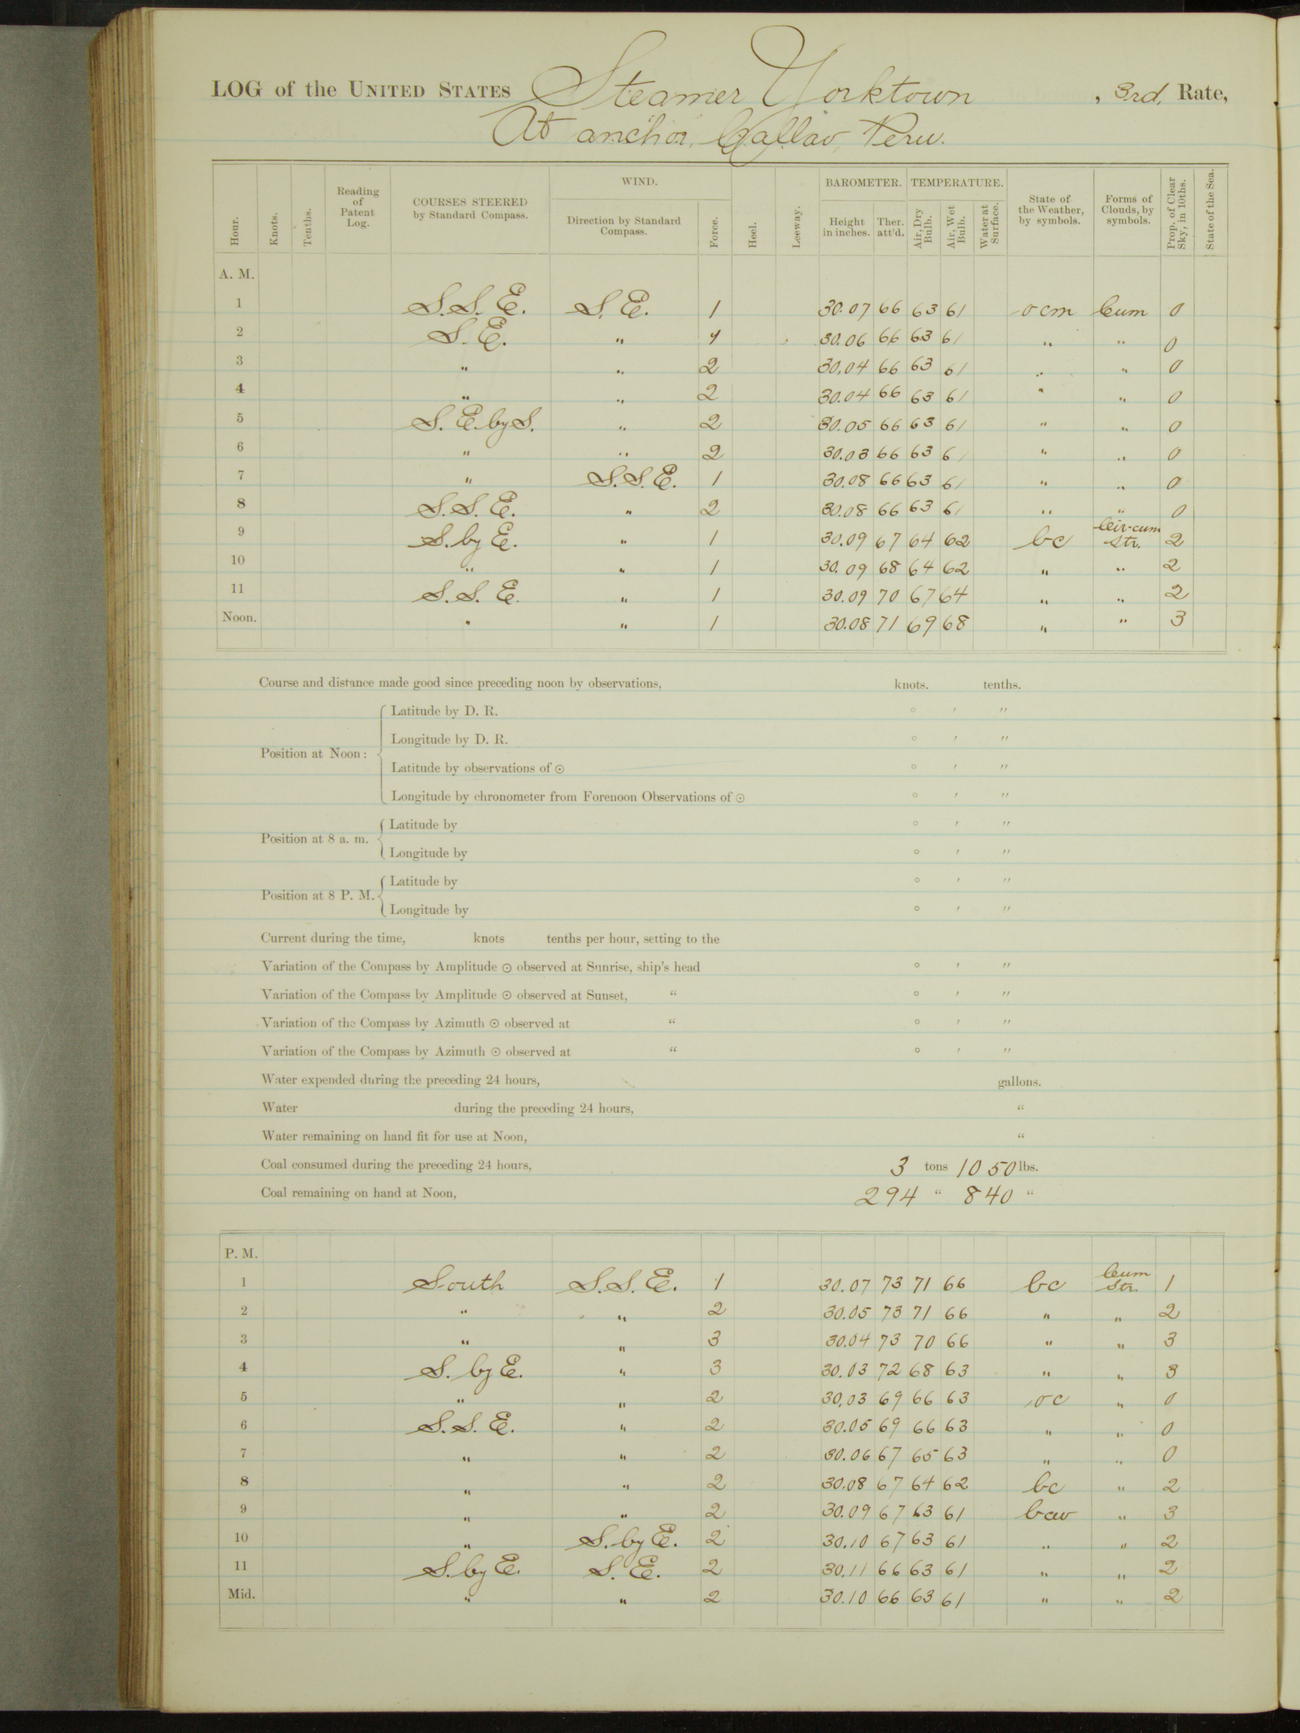 LOG of the UNITED STATES Steamer Yorktown, 3rd, Rate,
At anchor, Callao, Peru.
Hour. Knots. Tenths. Reading of Patent Log. COURSES STEERED by Standard Compass. WIND. Direction by Standard Compass. Force. Heel. Leeway. BAROMETER. Height in inches. Ther. att'd. TEMPERATURE. Air, Dry Bulb. Air, Wet Bulb. Water at Surface. State of the Weather, by symbols. Forms of Clouds, by symbols. Prop. of Clear Sky, in 10ths. State of the Sea.
A. M.
1 S.S.E. S.E. 1 30.07 66 63 61 ocm Cum 0
2 S.E. " 1 30.06 66 63 61 " " 0
3 " " 2 30.04 66 63 61 " " 0
4 " " 2 30.04 66 63 61 " " 0
5 S.E. by S. " 2 30.05 66 63 61 " " 0
6 " " 2 30.03 66 63 61 " " 0
7 " S.S.E. 1 30.08 66 63 61 " " 0
8 S.S.E. " 2 30.08 66 63 61 " " 0
9 S. by E. " 1 30.09 67 64 62 bc Cir-cum Str. 2
10 " " 1 30.09 68 64 62 " " 2
11 S.S.E. " 1 30.09 70 67 64 " " 2
Noon. " " 1 30.08 71 69 68 " " 3
Course and distance made good since preceding noon by observations, knots. tenths.
Position at Noon: Latitude by D. R. ° ′ ″
Longitude by D. R. ° ′ ″
Latitude by observations of ☉ ° ′ ″
Longitude by chronometer from Forenoon Observations of ☉ ° ′ ″
Position at 8 a. m. Latitude by ° ′ ″
Longitude by ° ′ ″
Position at 8 P. M. Latitude by ° ′ ″
Longitude by ° ′ ″
Current during the time, knots tenths per hour, setting to the
Variation of the Compass by Amplitude ☉ observed at Sunrise, ship's head ° ′ ″
Variation of the Compass by Amplitude ☉ observed at Sunset, " ° ′ ″
Variation of the Compass by Azimuth ☉ observed at " ° ′ ″
Variation of the Compass by Azimuth ☉ observed at " ° ′ ″
Water expended during the preceding 24 hours, gallons.
Water during the preceding 24 hours, "
Water remaining on hand fit for use at Noon, "
Coal consumed during the preceding 24 hours, 3 tons 1050 lbs.
Coal remaining on hand at Noon, 294 " 840 "
P. M.
1 South S.S.E. 1 30.07 73 71 66 bc Cum Str. 1
2 " " 2 30.05 73 71 66 " " 2
3 " " 3 30.04 73 70 66 " " 3
4 S. by E. " 3 30.03 72 68 63 " " 3
5 " " 2 30.03 69 66 63 oc " 0
6 S.S.E. " 2 30.05 69 66 63 " " 0
7 " " 2 30.06 67 65 63 " " 0
8 " " 2 30.08 67 64 62 bc " 2
9 " " 2 30.09 67 63 61 bcw " 3
10 " S. by E. 2 30.10 67 63 61 " " 2
11 S. by E. S.E. 2 30.11 66 63 61 " " 2
Mid. " " 2 30.10 66 63 61 " " 2